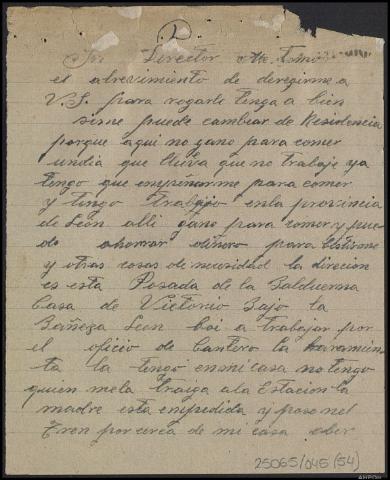 1
Sr. Director Me tomo
el atrevimiento de deregirme a
V.S. para rogarle tenga a bien
sime puede cambear de Residencia
porque aqui no gano para comer
undia que lluva que no trabaje ya
tengo que empeñarme para comer
y tengo trabajo enla provincia
de León alli gano para comer y pue
do ahorrar dinero para bistirme
y otras cosas de necesidad la direcion
es esta Posada de la Balduerna
Casa de Victorio Bajo la
Bañeza León boi a trabajar por
el oficio de Cantero la haramien
ta la tengo enmi casa no tengo
quien mela traiga ala Estacion la
madre esta empedida y paso nel
Tren por cerca de mi casa
25065/045(54)